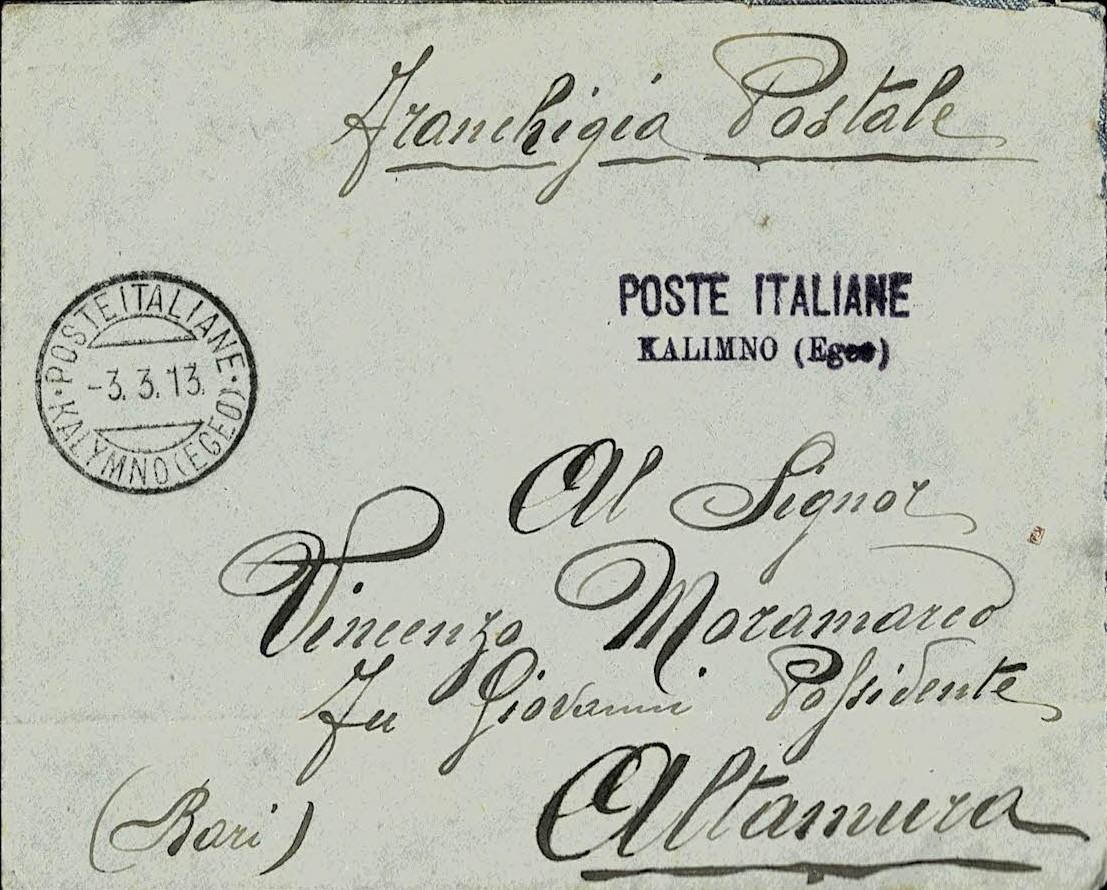 Franchigia Postale
POSTE ITALIANE
KALIMNO (Egeo)
POSTE ITALIANE
-3. 3. 13.
KALYMNO (EGEO)
Al Signor
Vincenzo Moramarco
Fu Giovanni Possidente
(Bari) Altamura